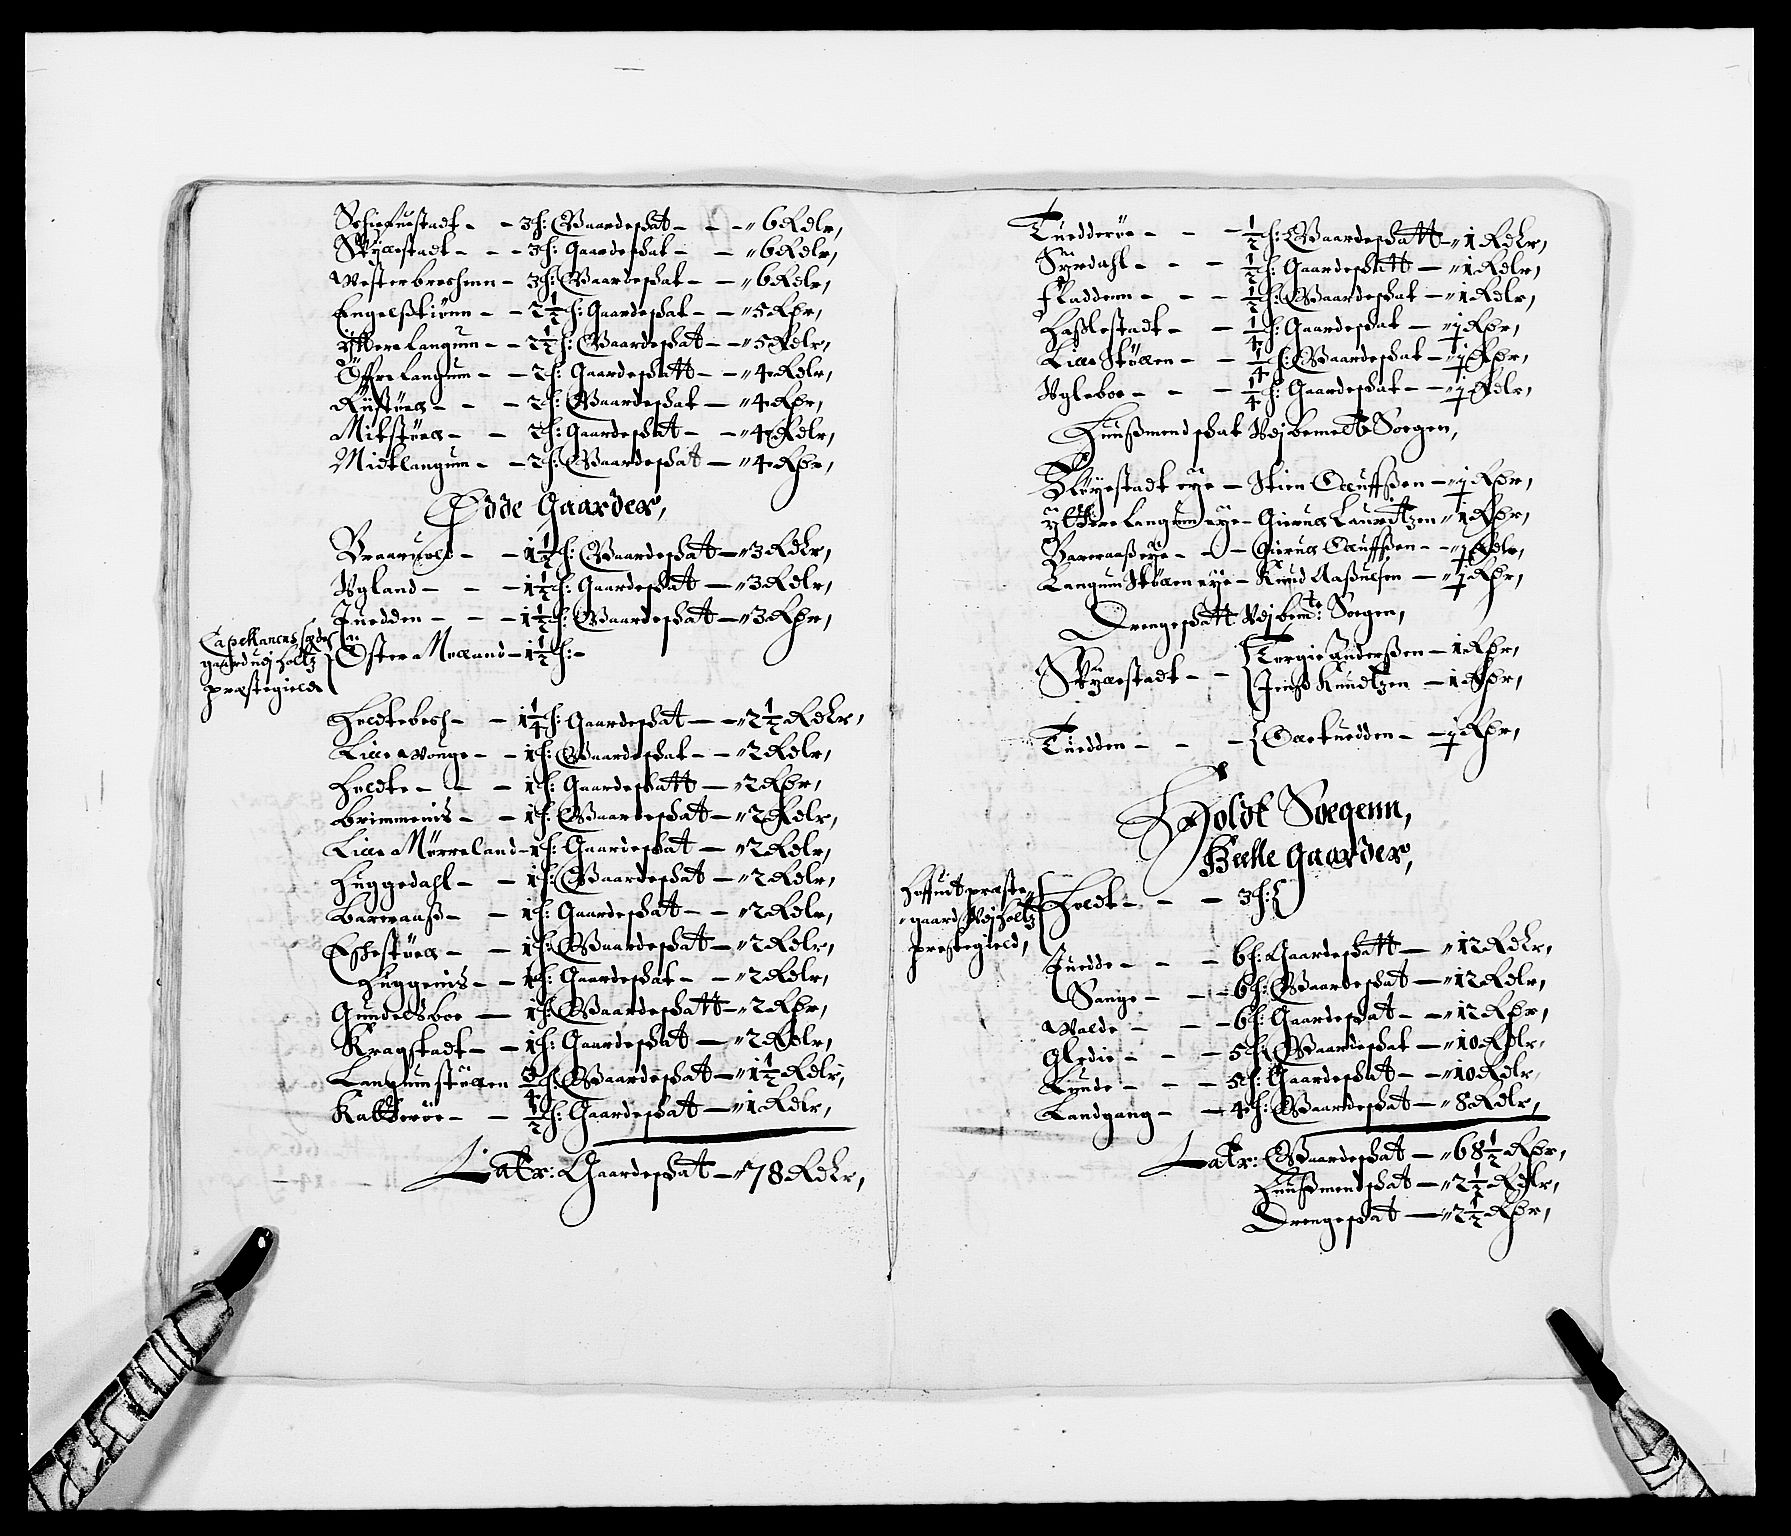 Schiefuestadt - - 3 h: Gaardeschat - - " 6 Rdlr,
Skyllestadt - - - 3 h: Gaardeschat - - " 6 Rdlr,
Westerbrechenn - 3 h: Gaardeschat - - " 6 Rdlr,
Engelßkiönn - - 2 1/2 h: Gaardeschat - - " 5 Rdr,
Yttere Langum - - 2 1/2 h: Gaardeschat - " 5 Rdlr,
Öffre Langum - - 2 h: Gaardeschatt - " 4 Rdlr,
Rüstöell - - - 2 h: Gaardeschat - " 4 Rdr,
Mitstöell - - 2 h: Gaardeschat - " 4 Rdlr,
Midtlangum - - 2 h: Gaardeschat - " 4 Rdr,
Ödde Gaarder,
Braaruold - - 1 1/2 h: Gaardeschat - " 3 Rdlr,
Ugland - - - 1 1/2 h: Gaardeschat - " 3 Rdlr,
Juedden - - - 1 1/2 h: Gaardeschat - " 3 Rdr,
Capellanens sæde
gaard udj Holtz
præstegield
Öster Molland - 1 1/2 h: -
Holdtebech - - 1 1/4 h: Gaardeschat - - " 2 1/2 Rdlr,
Lille Wouge - - 1 h: Gaardeschat - - " 2 Rdlr,
Holdte - - - 1 h: Gaardeschatt - " 2 Rdr,
Brimmenis - - 1 h: Gaardeschat - " 2 Rdlr,
Lille Mörreland - 1 h: Gaardeschat - " 2 Rdlr,
Huggedahl - - 1 h: Gaardeschat - " 2 Rdlr,
Barwaaß - - 1 h: Gaardeschat - - " 2 Rdlr,
Eschestöell - - 1 h: Gaardeschat - " 2 Rdlr,
Huggenis - - 1 h: Gaardeschat - - " 2 Rdlr,
Gundelsboe - 1 h: Gaardeschatt - " 2 Rdr,
Kragstadt - - 1 h: Gaardeschat - " 2 Rdlr,
Langumstöellen 3/4 h: Gaardeschat - " 1 1/2 Rdlr,
Katteröe - - 1/2 h: Gaardeschat - " 1 Rdlr,
Latr: Gaardeschat - " 78 Rdlr,
Tuedderöe - - - 1/2 h: Gaardeschatt - " 1 Rdlr,
Syrdahl - - - 1/2 h: Gaardeschatt - " 1 Rdlr,
Fladdenn - - - 1/2 h: Gaardeschat - " 1 Rdlr,
Haßlestadt - - 1/4 h: Gaardeschat - " 1/2 Rdr,
Lille Stöllen - - 1/4 h: Gaardeschat - " 1/2 Rdr,
Ugleboe - - - 1/4 h: Gaardeschat - - " 1/2 Rdlr,
Huußmendschat Udj bemelte Soegen,
Fløyestadt eye - Stien Olluffßen - " 1/2 Rdr,
yttere Langum eye - Gierull Lauritzen " 1/2 Rdr,
Barwaaß eye - - - Gierull Olluffßen - - " 1/2 Rdlr,
Langum Stöllen eye - Knud Aaßulsen - " 1/2 Rdr,
Drengeschatt Udj bemte: Soegen,
Skyllestadt - - { Tergie Anderßen - 1 Rdr,
Jenß Knudtzen - 1 Rdr,
Tuedden - - - { Olle tuedden - - 1/2 Rdr,
Holdt Soegenn,
Heelle Gaarder,
Hoffuit præste
gaard Udj Holtz
prestegield,
Holdt - - - 3 h:
Juedde - - - 6 h: Gaardeschatt - " 12 Rdlr,
Sange - - - 6 h: Gaardeschat - " 12 Rdlr,
Walde - - - 6 h: Gaardeschat - - " 12 Rdr,
Gledie - - - 5 h: Gaardeschat - " 10 Rdlr,
Lynde - - - 5 h: Gaardeschat - " 10 Rdlr
Landgang - - 4 h: Gaardeschat - " 8 Rdlr,
Latr: Gaardeschat - " 68 1/2 Rdr,
Huußmendschat - " 2 1/2 Rdlr,
Drengeschat - " 2 1/2 Rdr,